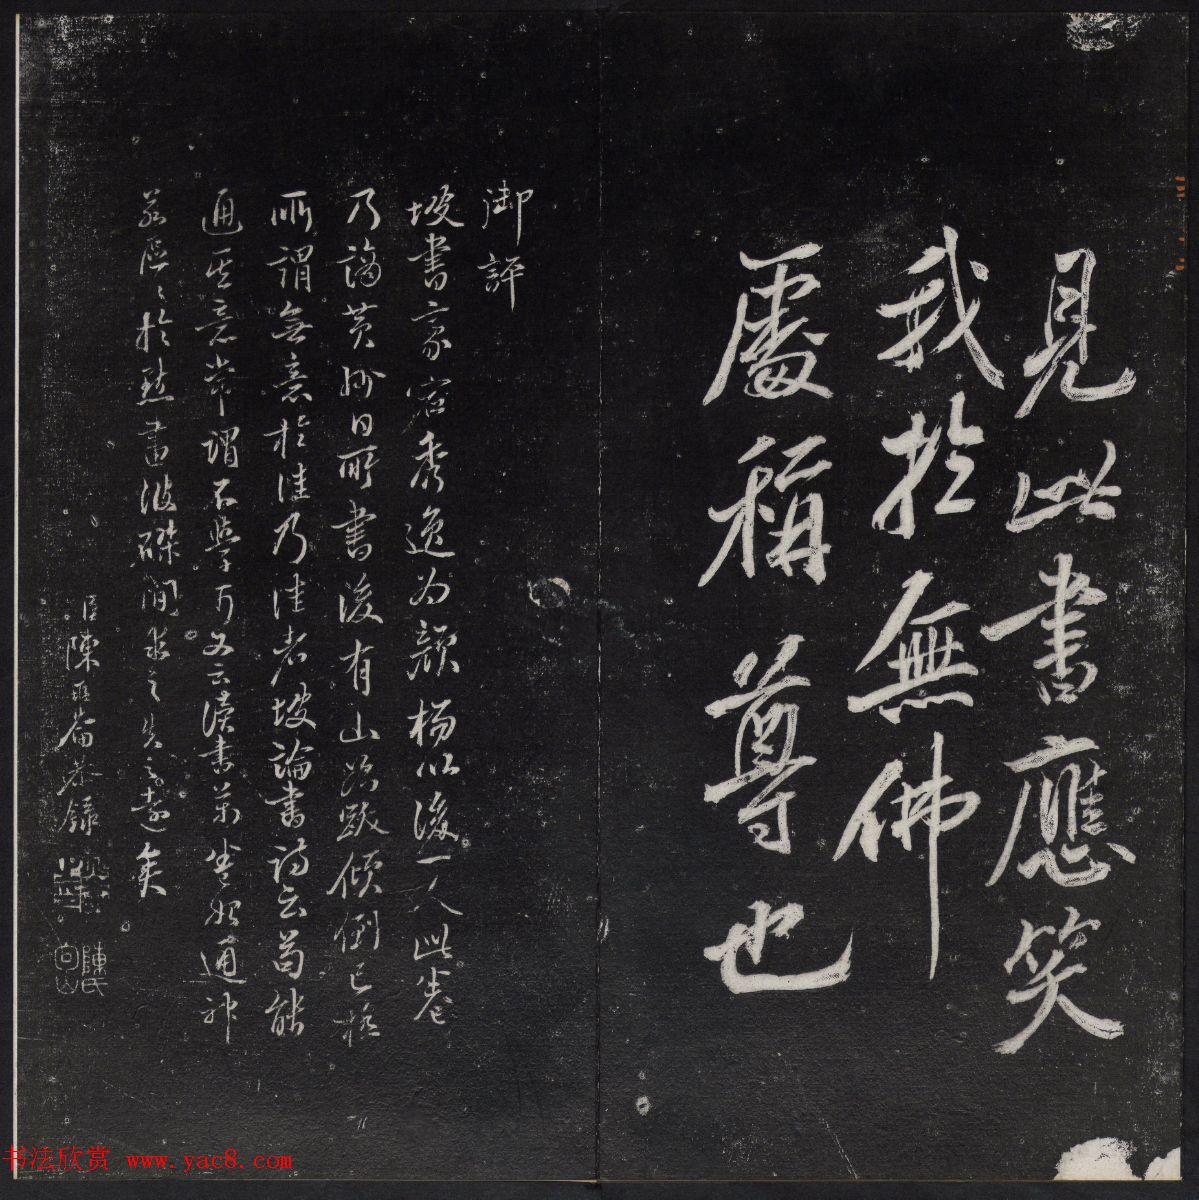 見此書應笑
我於無佛
處稱尊也
御評
坡書豪宕秀逸為顏楊以後一人此卷
乃謫黃州日所書後有山谷跋傾倒已極
所謂無意於佳乃佳者坡論書詩云苟能
通其意常謂不學可又云讀書萬卷始通神
若區區於點畫波磔間求之失之遠矣
臣陳 恭錄
书法欣赏 www.yac8.com